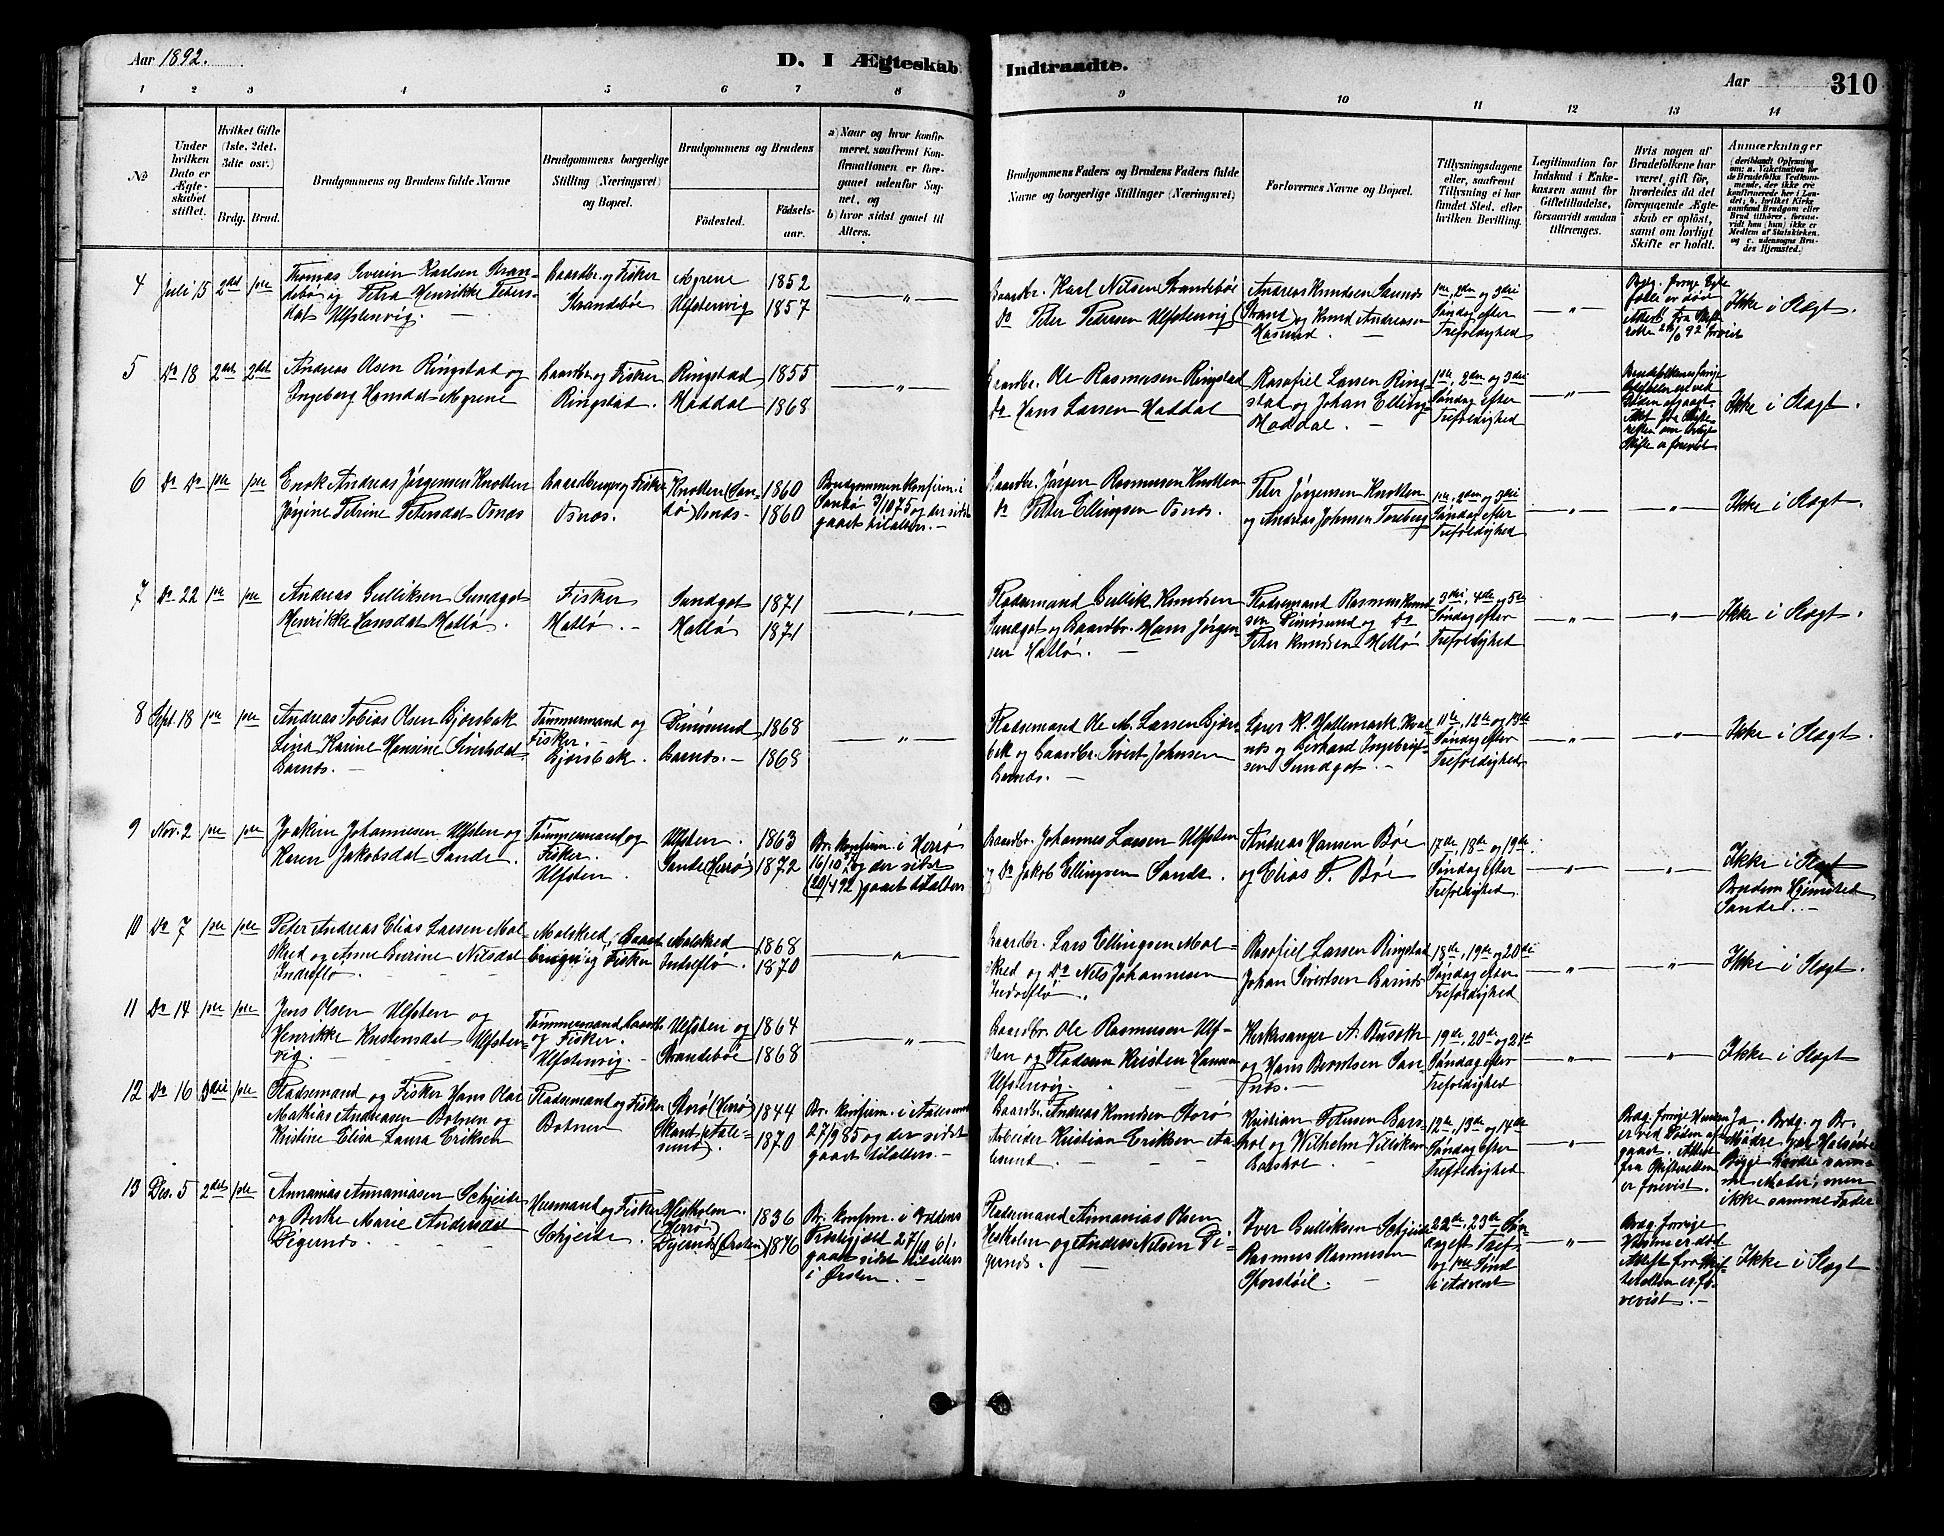 Aar 1892.
D. I Ægteskab Indtraadte.
Aar
310
1 2 3 4 5 6 7 8 9 10 11 12 13 14
No
Under hvilken Dato er Ægteskabet stiftet.
Hvilket Gifte (1ste, 2det, 3die osv.)
Brdg. Brud.
Brudgommens og Brudens fulde Navne
Brudgommens borgerlige Stilling (Næringsvei) og Bopæl.
Brudgommens og Brudens
Födested.
Födselsaar.
a) Naar og hvor konfirmeret, saafremt Konfirmationen er foregaaet udenfor Sognet, og
b) hvor sidst gaaet til Alters.
Brudgommens Faders og Brudens Faders fulde Navne og borgerlige Stillinger (Næringsvei)
Forlovernes Navne og Bopæl.
Tillysningsdagene eller, saafremt Tillysning ei har fundet Sted, efter hvilken Bevilling.
Legitimation for Indskud i Enkekassen samt for Giftetilladelse, forsaavidt saadan tiltrænges.
Hvis nogen af Brudefolkene har været gift för, hvorledes da det foregaaende Ægteskab er oplöst, samt om lovligt Skifte er holdt.
Anmærkninger
4 Juli 15 2det 1ste
Thomas Severin Karlsen Strandebø og Petra Henrikke Petersdat Ulfstenvig.
Gaardbr. og Fisker Strandebøe
Myrene 1852
Ulfstenvig 1857
Gaardbr. Karl Nilsen Strandebøe
Do Peter Pedersen Ulfstenvig
Andreas Knudsen Saunes (Strand) og Knud Andreasen Hasund.
1ste, 2den og 3die Søndag efter Trefoldighed
Ikke i Slægt.
5 Do 18 2det 2det
Andreas Olsen Ringstad og Ingeborg Hansdat Myrene
Gaardbr. og Fisker Ringstad.
Ringstad 1855
Haddal 1868
Gaardbr. Ole Rasmusen Ringstad
Do Hans Larsen Haddal
Rasofiel Larsen Ringstad og Johan Elling Haddal.
1ste, 2den og 3die Søndag efter Trefoldighed
Ikke i Slægt.
6 Do Do 1ste 1ste
Enok Andreas Jørgensen Knotten
Jørgine Petrine Petersdat Osnæs
Gaardbruger og Fisker Osnæs.
Knotten (Sandø) 1860
Osnæs 1860
Brudgommen konfirm. i Sandø 3/10 75 og der sidst gaaet til alters.
Gaardbr. Jørgen Rasmusen Knotten
Do Peter Ellingsen Osnæs.
Peter Jørgensen Knotten og Andreas Johnsen Toreberg
1ste, 2den og 3die Søndag efter Trefoldighed
Ikke i Slægt.
7 Do 22 1ste 1ste
Andreas Gulliksen Sundgot
Henrikke Hansdat Hatlø.
Fisker Hatlø.
Sundgot 1871
Hatlø 1871
Pladsemand Gullik Knudsen Sundgot og Gaardbr. Hans Jørgensen Hatlø.
Pladsemand Rasmus Knudsen Dimøsund og Do Peter Knudsen Hatlø
3die, 4de og 5te Søndag efter Trefoldighed
Ikke i Slægt.
8 Sept. 18 1ste 1ste
Andreas Tobias Olsen Bjørsbak
Lina Karine Hansine Sivertsdat Garnæs.
Tømmermand og Fisker. Bjørsbak.
Dimøsund 1868
Garnæs. 1868
Pladsemand Ole M. Larsen Bjørsbak og Gaardbr. Sivert Johnsen Garnæs.
Lærer R. Hallemark og Gerhard Ingebrigtsen Sundgot.
11te, 12te og 13de Søndag efter Trefoldighed
Ikke i Slægt.
9 Nov. 2 1ste 1ste
Joakim Johannesen Ulfsten og Karen Jakobsdat Sande.
Tømmermand og Fisker. Ulfsten.
Ulfsten. 1863
Sande (Herrø) 1872
Br. konfirm. i Herrø 16/10 87 og der sidst (20/4 92) gaaet til alters
Gaardbr. Johannes Larsen Ulfsten og Do Jakob Ellingsen Sande.
Andreas Hansen Bøe og Elias P. Bøe
17de, 18de og 19de Søndag efter Trefoldighed
Ikke i Slægt
Brudens Hjemsted Sande.
10 Do 7 1ste 1ste
Peter Andreas Elias Larsen Molskred og Anne Gurine Nilsdat Indreflø
Molskred, Gaardbruger og Fisker
Molskred 1868
Indreflø. 1870
Gaardbr. Lars Ellingsen Molskred og Do Nils Johannesen Indreflø.
Rasofiel Larsen Ringstad
Johan Sivertsen Garnæs
18de, 19de og 20de Søndag efter Trefoldighed
Ikke i Slægt.
11 Do 14 1ste 1ste
Jens Olsen Ulfsten og Henrikke Kristensdat Ulfstenvig.
Tømmermand Gaardbr. og Fisker. Ulfstenvig.
Ulfsten og 1864
Strandebøe 1868
Gaardbr. Ole Rasmusen Ulfsten og Pladsem Kristen Hansen Ulfstenvig.
Kirkesanger A. Busæth og Hans Berntsen Saunæs.
19de, 20de og 21de Søndag efter Trefoldighed
Ikke i Slægt
12 Do 16 3die 1ste
Pladsemand og Fisker Hans Olai Mathias Andreasen Botnen og Kristine Elisa Laura Eriksen
Pladsemand og Fisker Botnen
Storø (Herrø) 1844
Aalesund 1870
Br. konfirm. i Aalesund 27/9 85 og der sidst gaaet til alters.
Gaardbr. Andreas Knudsen Storø
Arbeider Kristian Eriksen Aalesund.
Kristian Petersen Garshol og Wilhelm Villiksen Garshol.
12te, 13de og 14de Søndag efter Trefoldighed
Brdg. forrige Hustru er ved Døden afgaaet. Attest fra Skifteretten er forevist.
13 Des. 5 2det 1ste
Annanias Annaniasen Schjeide og Berthe Marie Andersdat Digernæs.
Huusmand og Fisker Schjeide.
Hestholm. (Herrø) 1836
Digernæs (Ørsten) 1876
Br. konfirm. i Voldens Præstegjeld gaaet sidst til alters i Ørsten.
Pladsemand Annanias Olsen Hestholm og Andreas Nilsen Digernæs.
Iver Gulliksen Schjeide
Rasmus Rasmusen Sporstøil.
22de, 23de Søndag eft. Tref. og 1ste Sønd i Advent
Brdg. forrige Hustru er død Attest fra Skifteretten er forevist.
Ikke i Slægt